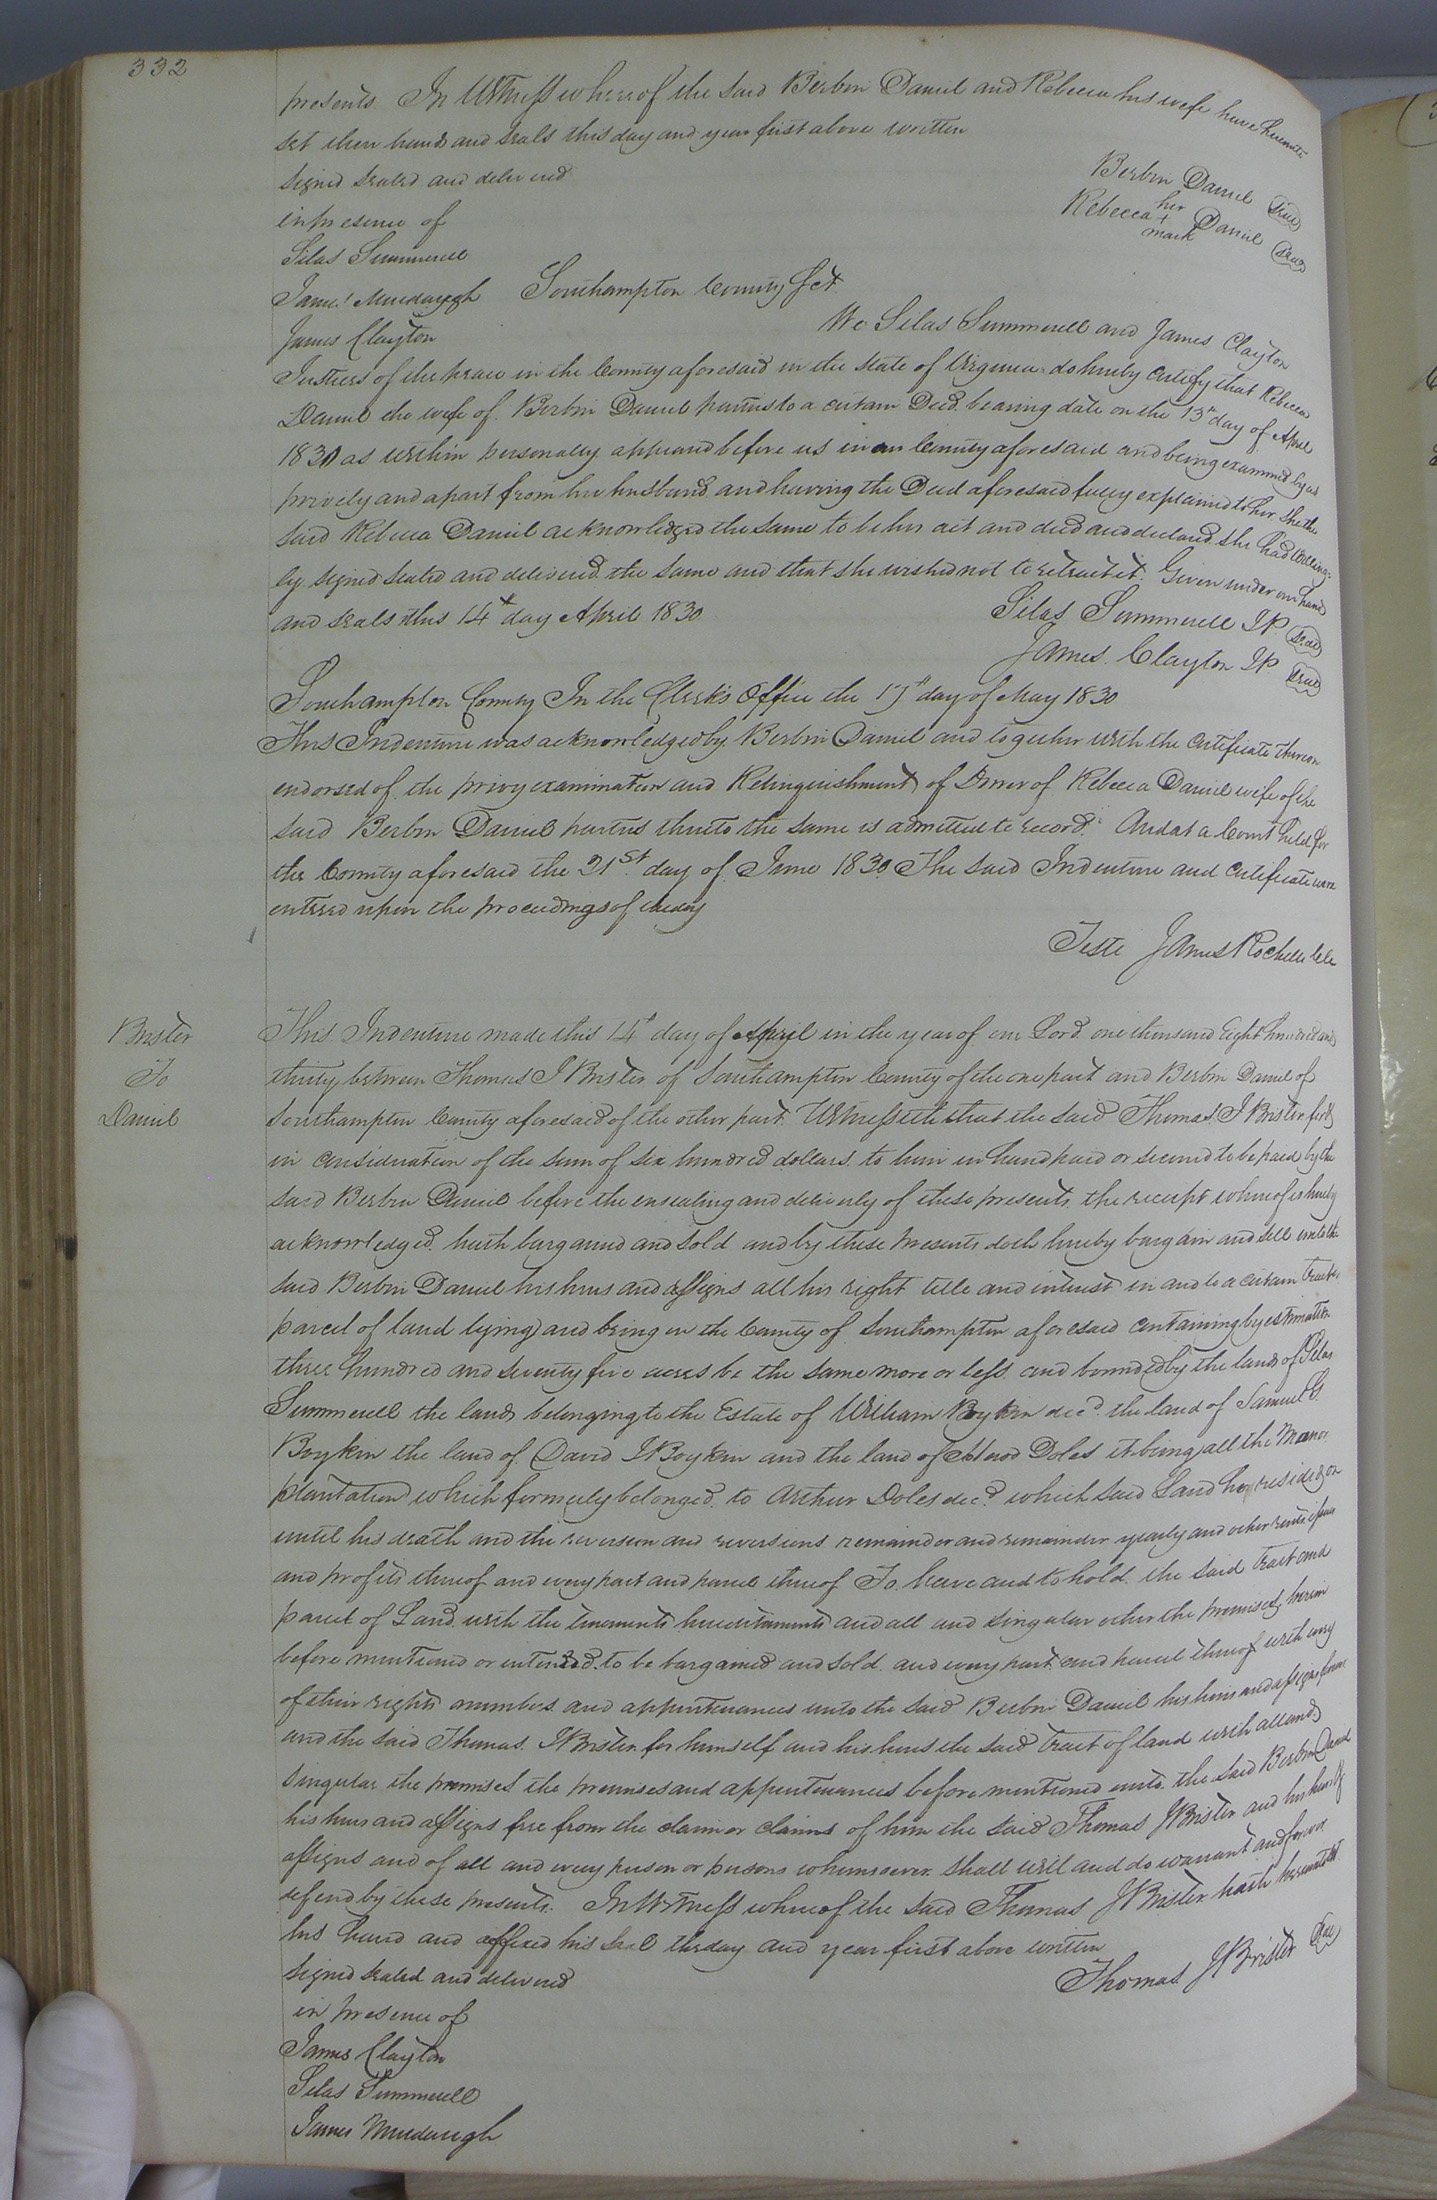 332
presents. In Witness whereof the said Berbin Daniel and Rebecca his wife have hereunto
set their hands and seals this day and year first above written
Signed sealed and delivered
in presence of
Berbin Daniel (Seal)
Rebecca her + mark Daniel (Seal)
Silas Summerell
James Murdaugh
James Clayton
Southampton County Sct.
We Silas Summerell and James Clayton
Justices of the peace in the County aforesaid in the State of Virginia do hereby certify that Rebecca
Daniel the wife of Berbin Daniel parties to a certain Deed bearing date on the 13th day of April
1830 as within personally appeared before us in our County aforesaid and being examined by us
privily and apart from her husband and having the Deed aforesaid fully explained to her she the
said Rebecca Daniel acknowledged the same to be her act and deed and declared she had willing-
ly signed sealed and delivered the same and that she wished not to retract it. Given under our hands
and seals this 14th day April 1830
Silas Summerell J.P. (Seal)
James Clayton J.P. (Seal)
Southampton County In the Clerk's Office the 17th day of May 1830
This Indenture was acknowledged by Berbin Daniel and together with the Certificate thereon
endorsed of the privy examination and Relinquishment of Dower of Rebecca Daniel wife of the
said Berbin Daniel parties thereto the same is admitted to record. And at a Court held for
the County aforesaid the 21st day of June 1830 The said Indenture and certificate were
entered upon the proceedings of the day
Teste James Rochelle Clk
Brister
To
Daniel
This Indenture made this 14th day of April in the year of our Lord one thousand Eight hundred and
thirty between Thomas J Brister of Southampton County of the one part and Berbin Daniel of
Southampton County aforesaid of the other part. Witnesseth that the said Thomas J Brister for &
in consideration of the sum of six hundred dollars to him in hand paid or secured to be paid by the
said Berbin Daniel before the ensealing and delivery of these presents the receipt whereof is hereby
acknowledged hath bargained and sold and by these presents doth hereby bargain and sell unto the
said Berbin Daniel his heirs and assigns all his right title and interest in and to a certain tract or
parcel of land lying and being in the County of Southampton aforesaid containing by estimation
three hundred and seventy five acres be the same more or less and bounded by the lands of Silas
Summerell the lands belonging to the Estate of William Boykin decd. the land of Samuel
Boykin the land of David J Boykin and the land of Doles it being all the Manor
plantation which formerly belonged to Arthur Doles decd. which said Land he resided on
until his death and the reversion and reversions remainder and remainder yearly and other rents issues
and profits thereof and every part and parcel thereof To have and to hold the said tract and
parcel of Land with the tenements hereditaments and all and singular other the premises herein
before mentioned or intended to be bargained and sold and every part and parcel thereof with every
of their rights members and appurtenances unto the said Berbin Daniel his heirs and assigns forever
and the said Thomas J Brister for himself and his heirs the said tract of land with all and
singular the premises the premises and appurtenances before mentioned unto the said Berbin Daniel
his heirs and assigns free from the claim or claims of him the said Thomas J Brister and his heirs or
assigns and of all and every person or persons whomsoever shall will and do warrant and forever
defend by these presents. In Witness whereof the said Thomas J Brister hath hereunto set
his hand and affixed his seal the day and year first above written
Signed sealed and delivered
in presence of
Thomas J Brister (Seal)
James Clayton
Silas Summerell
James Murdaugh